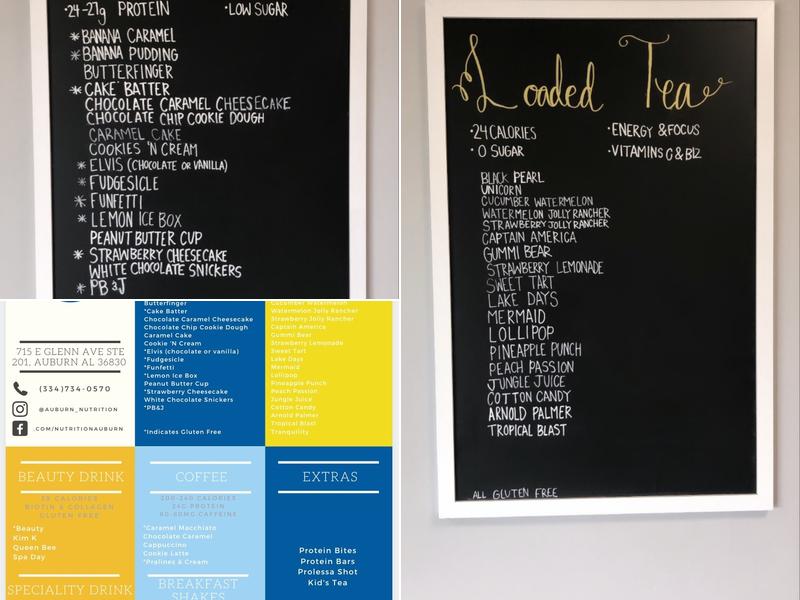 •24-27g PROTEIN •LOW SUGAR
*BANANA CARAMEL
*BANANA PUDDING
BUTTERFINGER
*CAKE BATTER
CHOCOLATE CARAMEL CHEESECAKE
CHOCOLATE CHIP COOKIE DOUGH
CARAMEL CAKE
COOKIES 'N CREAM
*ELVIS (CHOCOLATE OR VANILLA)
*FUDGESICLE
*FUNFETTI
*LEMON ICE BOX
PEANUT BUTTER CUP
*STRAWBERRY CHEESECAKE
WHITE CHOCOLATE SNICKERS
*PB&J
Loaded Tea
•24 CALORIES •ENERGY & FOCUS
•0 SUGAR •VITAMINS C & B12
BLACK PEARL
UNICORN
CUCUMBER WATERMELON
WATERMELON JOLLY RANCHER
STRAWBERRY JOLLY RANCHER
CAPTAIN AMERICA
GUMMI BEAR
STRAWBERRY LEMONADE
SWEET TART
LAKE DAYS
MERMAID
LOLLIPOP
PINEAPPLE PUNCH
PEACH PASSION
JUNGLE JUICE
COTTON CANDY
ARNOLD PALMER
TROPICAL BLAST
ALL GLUTEN FREE
715 E GLENN AVE STE
201, AUBURN AL 36830
(334)734-0570
@AUBURN_NUTRITION
.COM/NUTRITIONAUBURN
Butterfinger
*Cake Batter
Chocolate Caramel Cheesecake
Chocolate Chip Cookie Dough
Caramel Cake
Cookie 'N Cream
*Elvis (chocolate or vanilla)
*Fudgesicle
*Funfetti
*Lemon Ice Box
Peanut Butter Cup
*Strawberry Cheesecake
White Chocolate Snickers
*PB&J
*Indicates Gluten Free
Cucumber Watermelon
Watermelon Jolly Rancher
Strawberry Jolly Rancher
Captain America
Gummi Bear
Strawberry Lemonade
Sweet Tart
Lake Days
Mermaid
Lollipop
Pineapple Punch
Peach Passion
Jungle Juice
Cotton Candy
Arnold Palmer
Tropical Blast
Tranquility
BEAUTY DRINK
CALORIES
BIOTIN & COLLAGEN
GLUTEN FREE
*Beauty
Kim K
Queen Bee
Spa Day
SPECIALITY DRINK
COFFEE
200-240 CALORIES
24G PROTEIN
80-80MG CAFFEINE
*Caramel Macchiato
Chocolate Caramel
Cappuccino
Cookie Latte
*Pralines & Cream
BREAKFAST
SHAKES
EXTRAS
Protein Bites
Protein Bars
Prolessa Shot
Kid's Tea